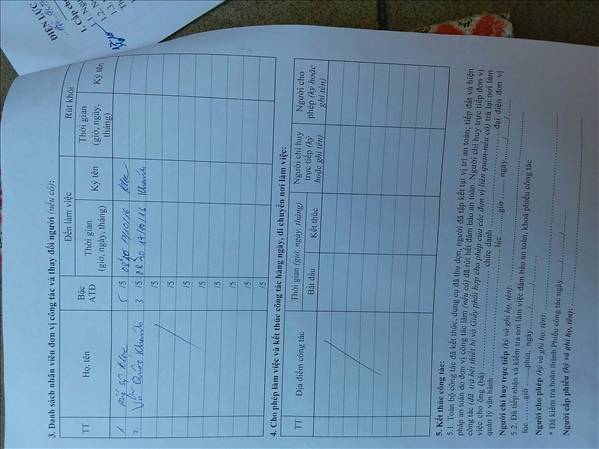 ĐIỆN LỰC
1. Cấp
1.1. Ngư
1.2. N
1.3.
3. Danh sách nhân viên đơn vị công tác và thay đổi người (nếu có):
TT
Họ, tên
Bậc ATĐ
Đến làm việc
Rút khỏi
Thời gian (giờ, ngày, tháng)
Ký tên
Thời gian (giờ, ngày, tháng)
Ký tên
1. 5 /5
2 Võ Quốc Khanh 3 /5 Khanh
/5
/5
/5
/5
/5
/5
4. Cho phép làm việc và kết thúc công tác hàng ngày, di chuyển nơi làm việc:
TT
Địa điểm công tác
Thời gian (giờ, ngày, tháng)
Bắt đầu
Kết thúc
Người chỉ huy trực tiếp (ký hoặc ghi tên)
Người cho phép (ký hoặc ghi tên)
5. Kết thúc công tác:
5.1. Toàn bộ công tác đã kết thúc, dụng cụ đã thu dọn, người đã tập kết tại vị trí an toàn; tiếp đất và biện
pháp an toàn do đơn vị công tác làm (nếu có) đã rút hết đảm bảo an toàn. Người chỉ huy trực tiếp đơn vị
công tác (đã trả hết thiết bị và Giấy phối hợp cho phép của các đơn vị liên quan-nếu có) trả lại nơi làm
việc cho ông (bà) ........ chức danh ........ đại diện đơn vị
quản lý vận hành ........ lúc ...... giờ ...... ngày....../....../......
Người chỉ huy trực tiếp (ký và ghi họ, tên):
5.2. Đã tiếp nhận và kiểm tra nơi làm việc đảm bảo an toàn, khoá phiếu công tác
lúc ........giờ ......phút, ngày ....../....../......
Người cho phép (ký và ghi họ, tên):
* Đã kiểm tra hoàn thành Phiếu công tác ngày ....../....../......
Người cấp phiếu (ký và ghi họ, tên):